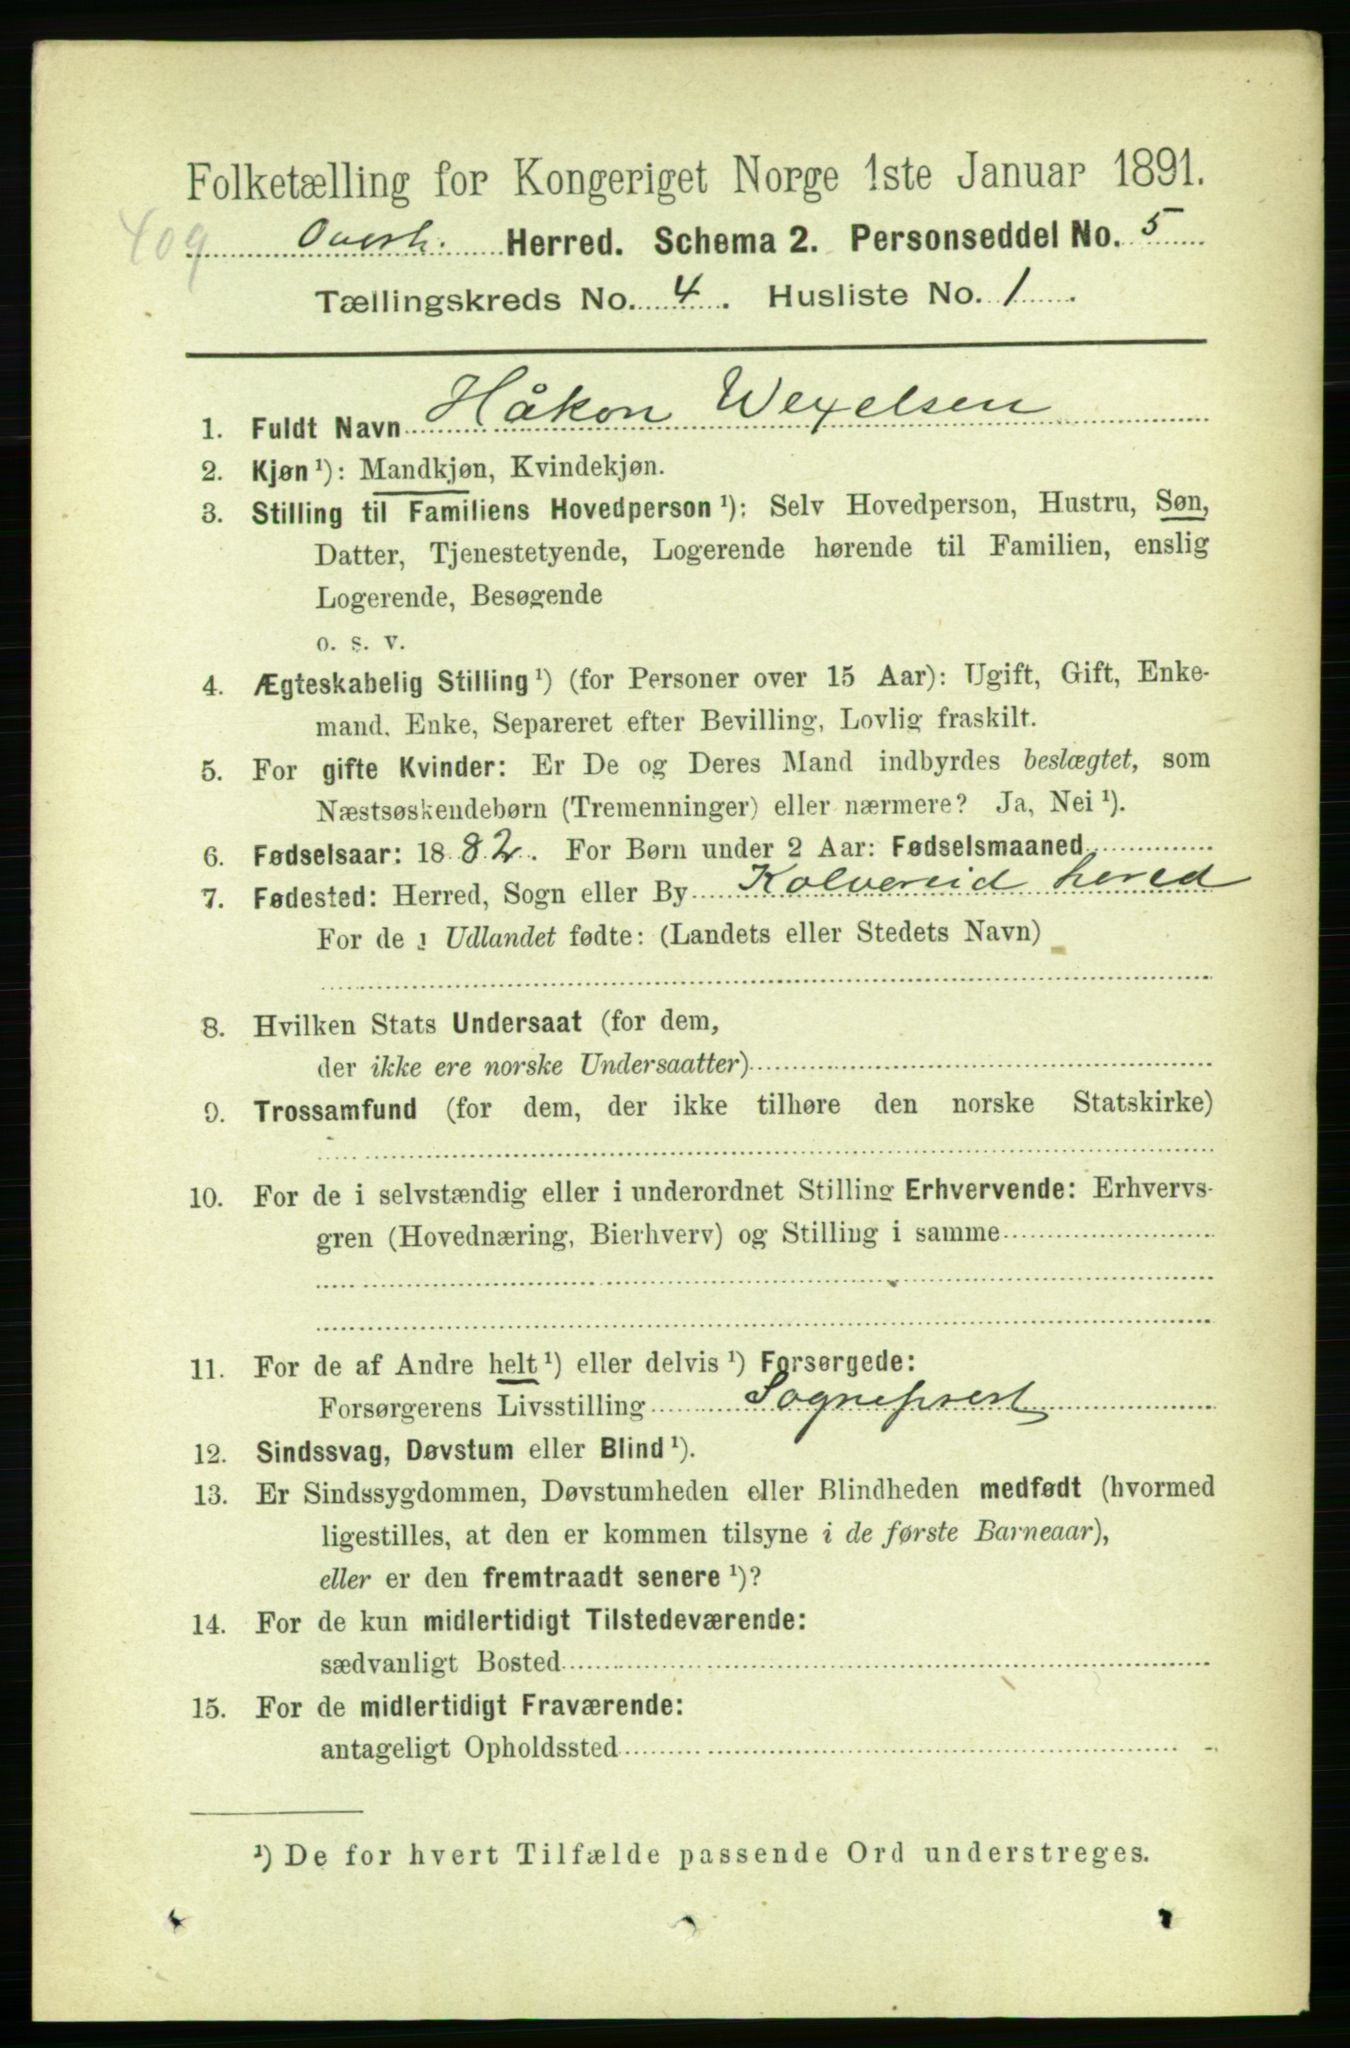 Folketælling for Kongeriget Norge 1ste Januar 1891.
409
Overh. Herred. Schema 2. Personseddel No. 5
Tællingskreds No. 4. Husliste No. 1.
1. Fuldt Navn Håkon Wexelsen
2. Kjøn ¹): Mandkjøn, Kvindekjøn.
3. Stilling til Familiens Hovedperson ¹): Selv Hovedperson, Hustru, Søn,
Datter, Tjenestetyende, Logerende hørende til Familien, enslig
Logerende, Besøgende
o. s. v.
4. Ægteskabelig Stilling ¹) (for Personer over 15 Aar): Ugift, Gift, Enke-
mand, Enke, Separeret efter Bevilling, Lovlig fraskilt.
5. For gifte Kvinder: Er De og Deres Mand indbyrdes beslægtet, som
Næstsøskendebørn (Tremenninger) eller nærmere? Ja, Nei ¹).
6. Fødselsaar: 1882. For Børn under 2 Aar: Fødselsmaaned
7. Fødested: Herred, Sogn eller By Kolvereid hered
For de i Udlandet fødte: (Landets eller Stedets Navn)
8. Hvilken Stats Undersaat (for dem,
der ikke ere norske Undersaatter)
9. Trossamfund (for dem, der ikke tilhøre den norske Statskirke)
10. For de i selvstændig eller i underordnet Stilling Erhvervende: Erhvervs-
gren (Hovednæring, Bierhverv) og Stilling i samme
11. For de af Andre helt ¹) eller delvis ¹) Forsørgede:
Forsørgerens Livsstilling Sogneprest
12. Sindssvag, Døvstum eller Blind ¹).
13. Er Sindssygdommen, Døvstumheden eller Blindheden medfødt (hvormed
ligestilles, at den er kommen tilsyne i de første Barneaar),
eller er den fremtraadt senere ¹)?
14. For de kun midlertidigt Tilstedeværende:
sædvanligt Bosted
15. For de midlertidigt Fraværende:
antageligt Opholdssted
¹) De for hvert Tilfælde passende Ord understreges.